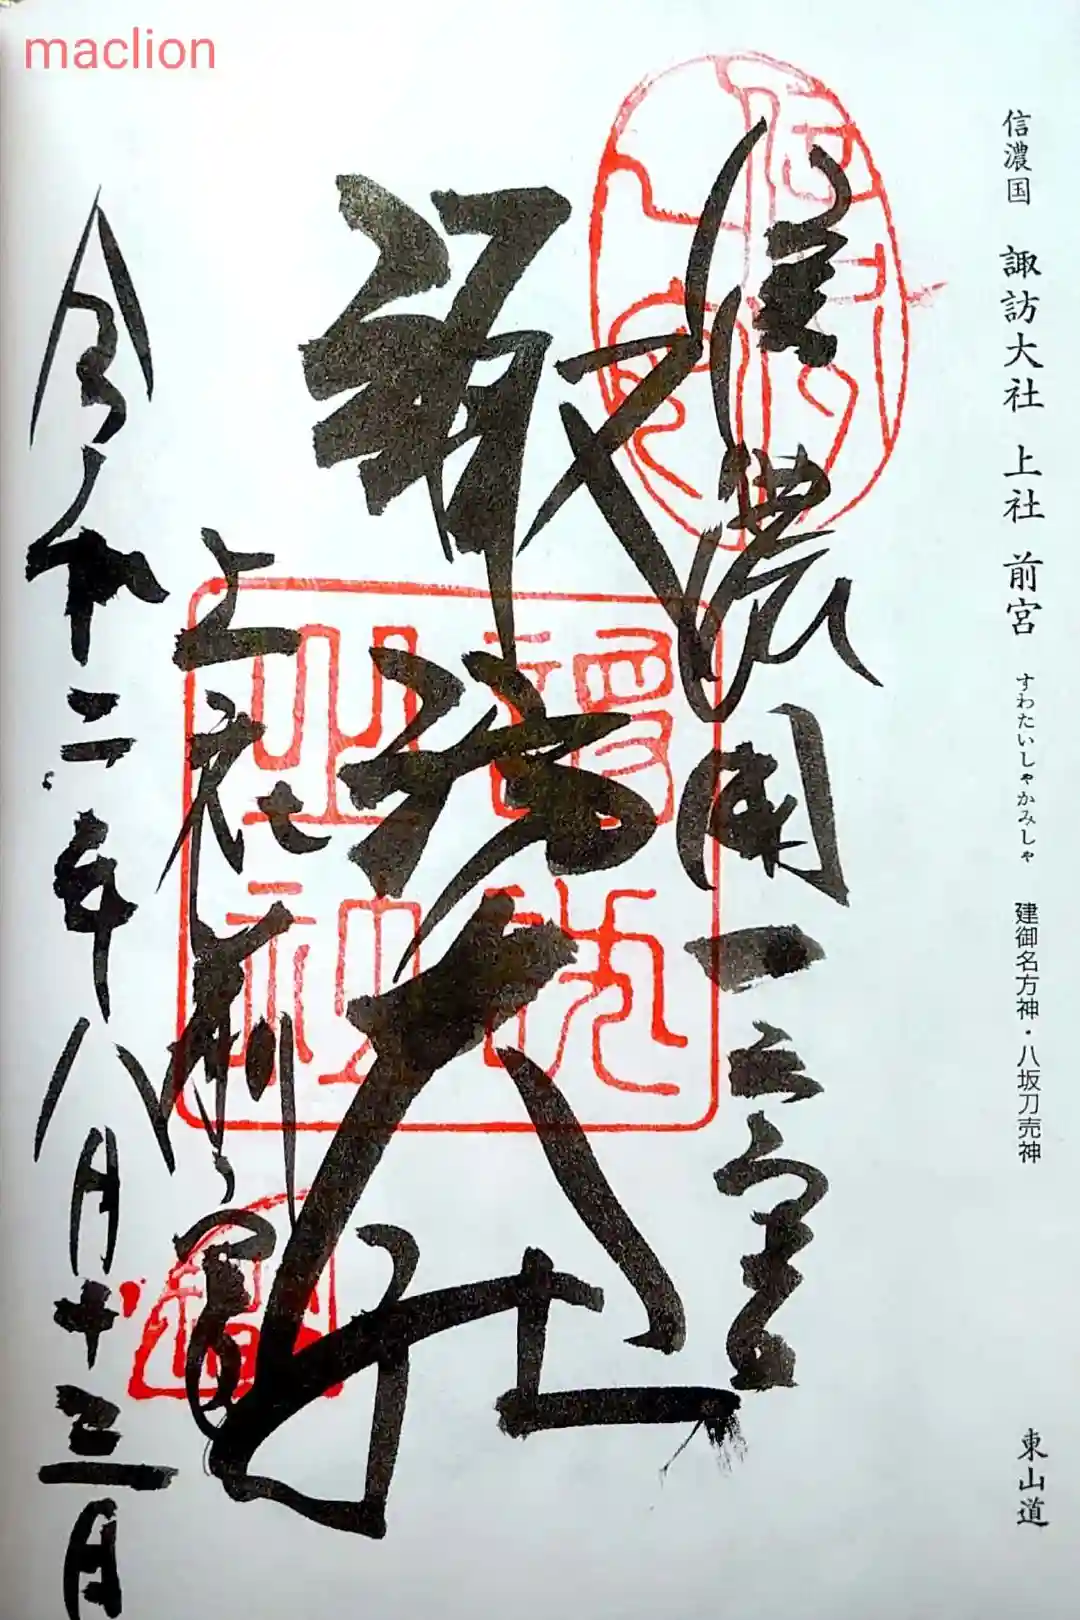 maclion
信濃国 諏訪大社 上社 前宮 すわたいしゃかみしゃ 建御名方神・八坂刀売神 東山道
信濃國一之宮
諏訪大社
上社前宮
令和二年八月十三日